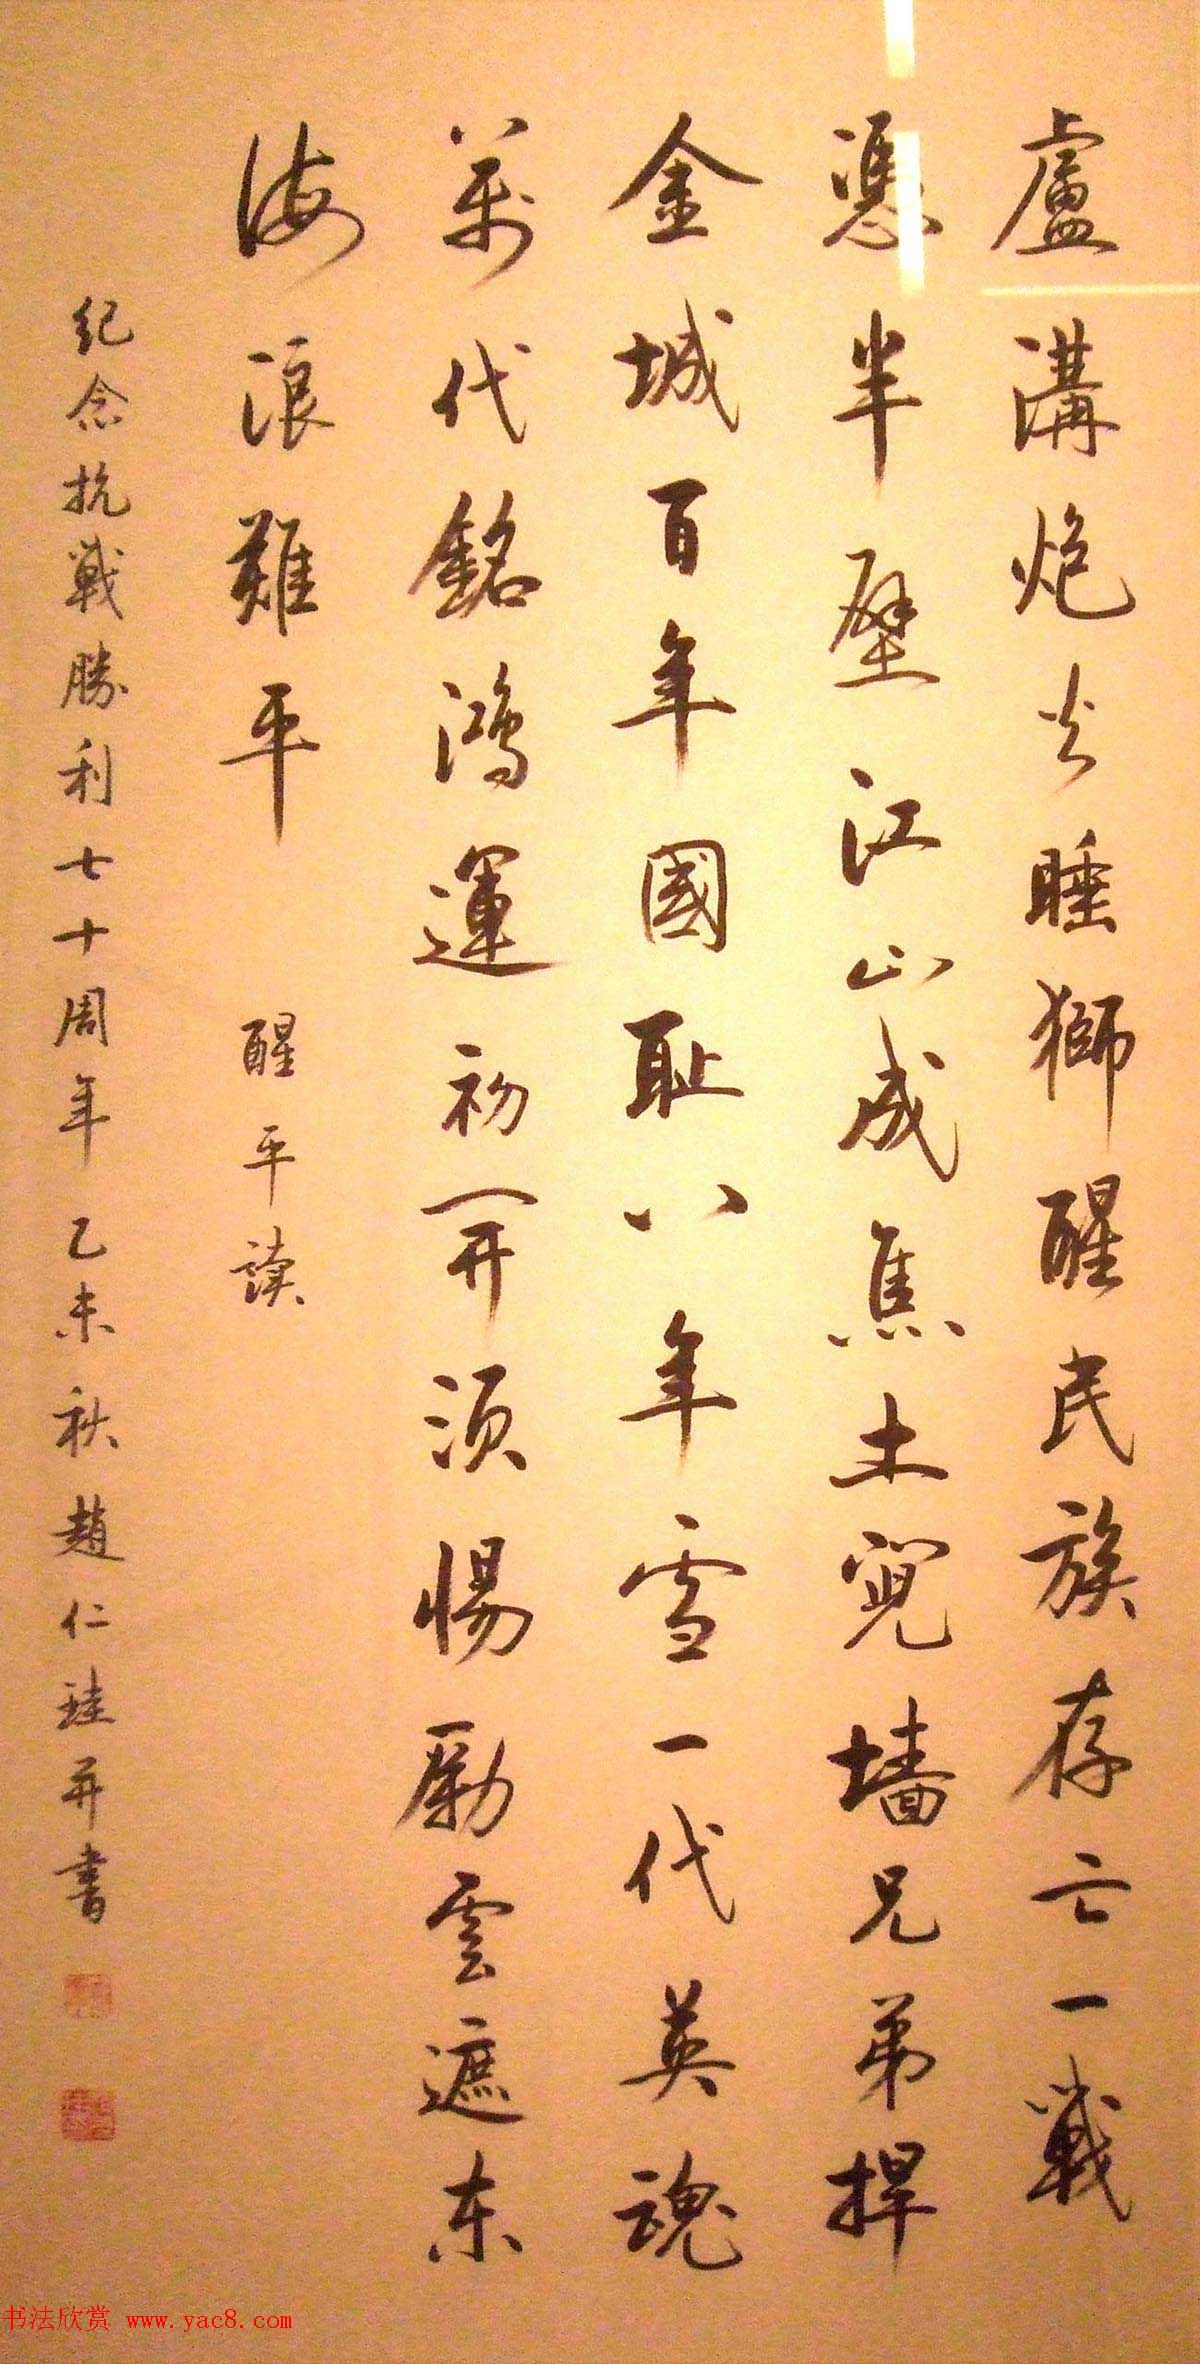 盧溝炮火睡獅醒民族存亡一戰
憑半壁江山成焦土鬩墻兄弟捍
金城百年國耻八年雪一代英魂
萬代銘鴻運初開須惕勵雲遮东
海浪難平
醒平读
纪念抗戰勝利七十周年乙未秋趙仁珪并書
书法欣赏 www.yac8.com